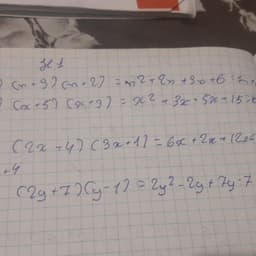 № 1
) (n+3)(n+2) = n²+2n+3n+6
) (x+5)(x+3) = x²+3x+5x+15
(2x+4)(3x+1) = 6x+2x+12x
+4
(2y+7)(y-1) = 2y²-2y+7y-7